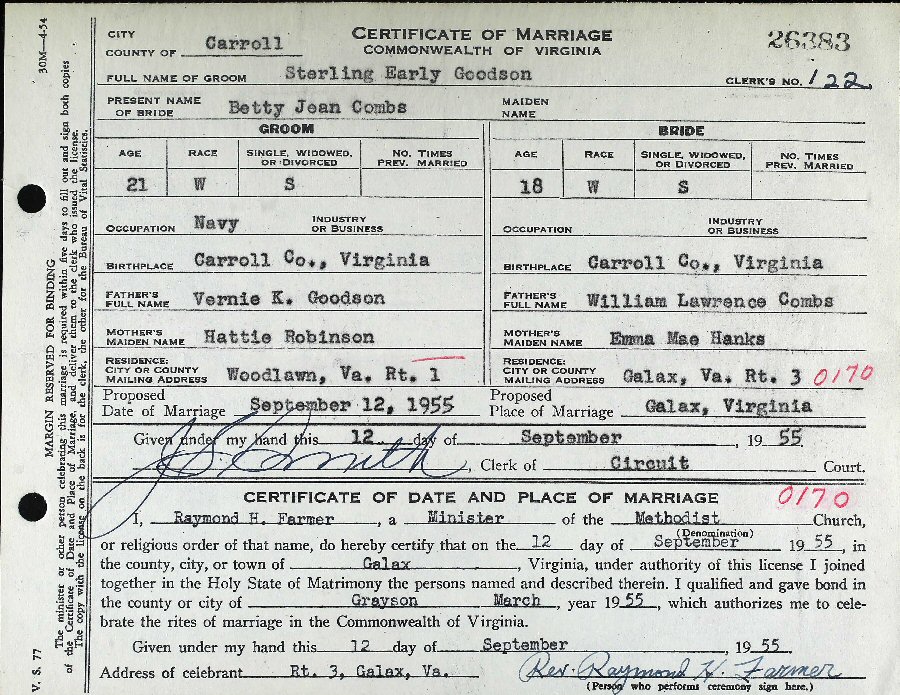 CITY
COUNTY OF Carroll
CERTIFICATE OF MARRIAGE
COMMONWEALTH OF VIRGINIA
26383
FULL NAME OF GROOM Sterling Early Goodson CLERK'S NO. 122
PRESENT NAME OF BRIDE Betty Jean Combs MAIDEN NAME
GROOM BRIDE
AGE RACE SINGLE, WIDOWED, OR DIVORCED NO. TIMES PREV. MARRIED AGE RACE SINGLE, WIDOWED, OR DIVORCED NO. TIMES PREV. MARRIED
21 W S 18 W S
OCCUPATION Navy INDUSTRY OR BUSINESS OCCUPATION INDUSTRY OR BUSINESS
BIRTHPLACE Carroll Co., Virginia BIRTHPLACE Carroll Co., Virginia
FATHER'S FULL NAME Vernie K. Goodson FATHER'S FULL NAME William Lawrence Combs
MOTHER'S MAIDEN NAME Hattie Robinson MOTHER'S MAIDEN NAME Emma Mae Hanks
RESIDENCE: CITY OR COUNTY MAILING ADDRESS Woodlawn, Va. Rt. 1 RESIDENCE: CITY OR COUNTY MAILING ADDRESS Galax, Va. Rt. 3 0170
Proposed Date of Marriage September 12, 1955 Proposed Place of Marriage Galax, Virginia
Given under my hand this 12 day of September, 1955
J S Smith, Clerk of Circuit Court.
CERTIFICATE OF DATE AND PLACE OF MARRIAGE 0170
I, Raymond H. Farmer, a Minister of the Methodist Church,
(Denomination)
or religious order of that name, do hereby certify that on the 12 day of September 1955, in
the county, city, or town of Galax, Virginia, under authority of this license I joined
together in the Holy State of Matrimony the persons named and described therein. I qualified and gave bond in
the county or city of Grayson March, year 1955, which authorizes me to cele-
brate the rites of marriage in the Commonwealth of Virginia.
Given under my hand this 12 day of September, 1955
Address of celebrant Rt. 3, Galax, Va. Rev. Raymond H. Farmer
(Person who performs ceremony sign here.)
V. S. 77 MARGIN RESERVED FOR BINDING 30M—4-54
The minister or other person celebrating this marriage is required within five days to fill out and sign both copies
of the Certificate of Date and Place of Marriage, and deliver them to the clerk who issued the license.
The copy with the license on the back is for the clerk, the other for the Bureau of Vital Statistics.